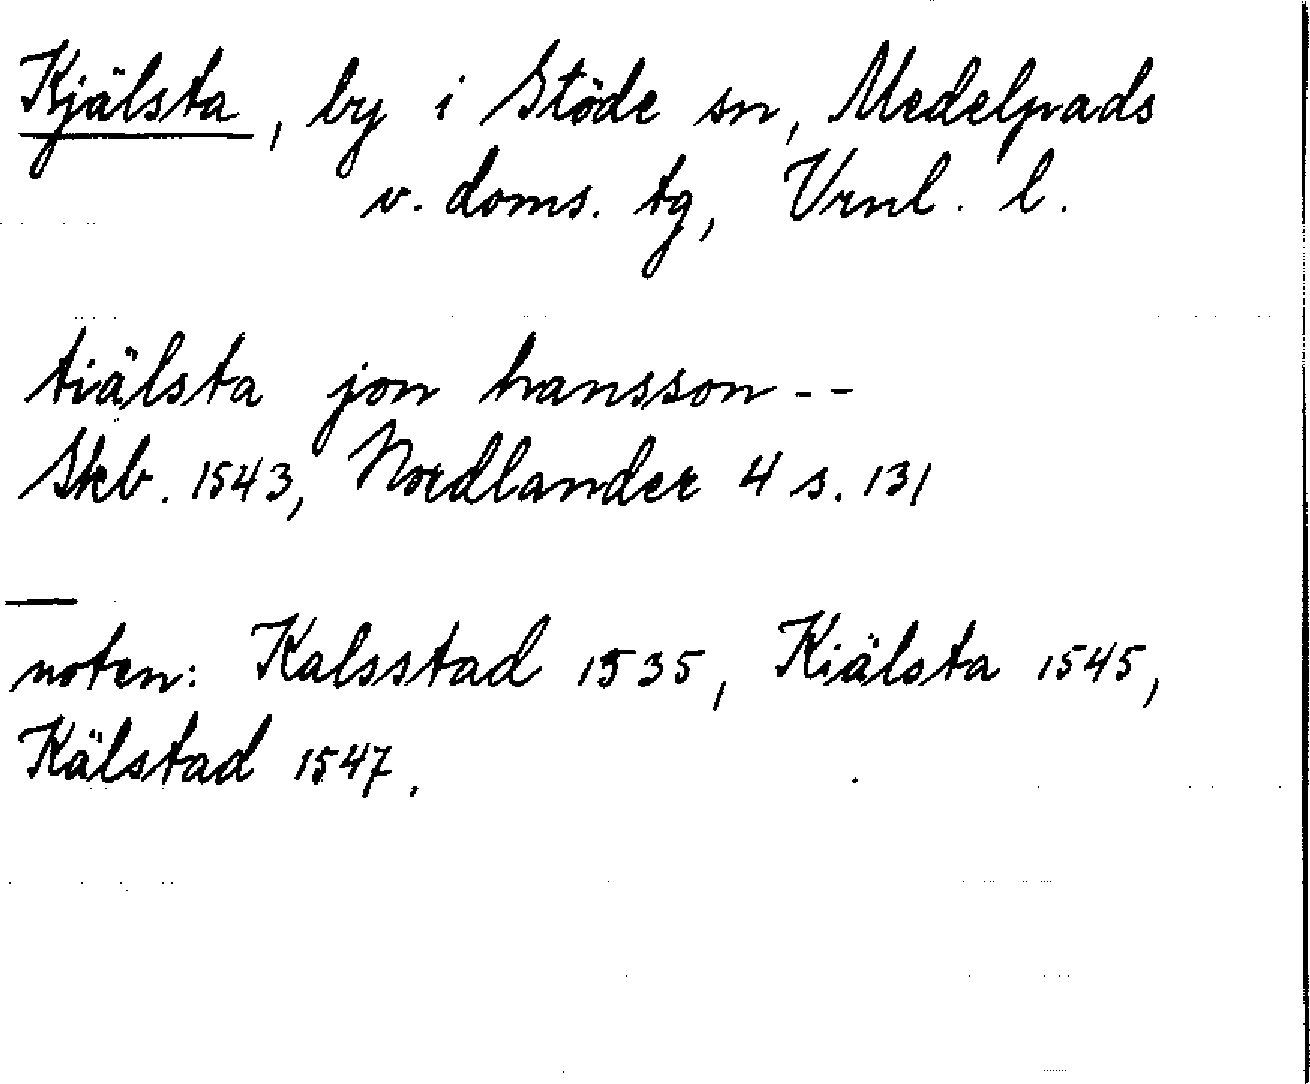 Kjälsta, by i Stöde sn, Medelpads
v. doms. tg, Vrnl. l.
tiälsta jon hansson --
Skb. 1543, Nordlander 4 s. 131
noten: Kalsstad 1535, Kiälsta 1545,
Kälstad 1547.